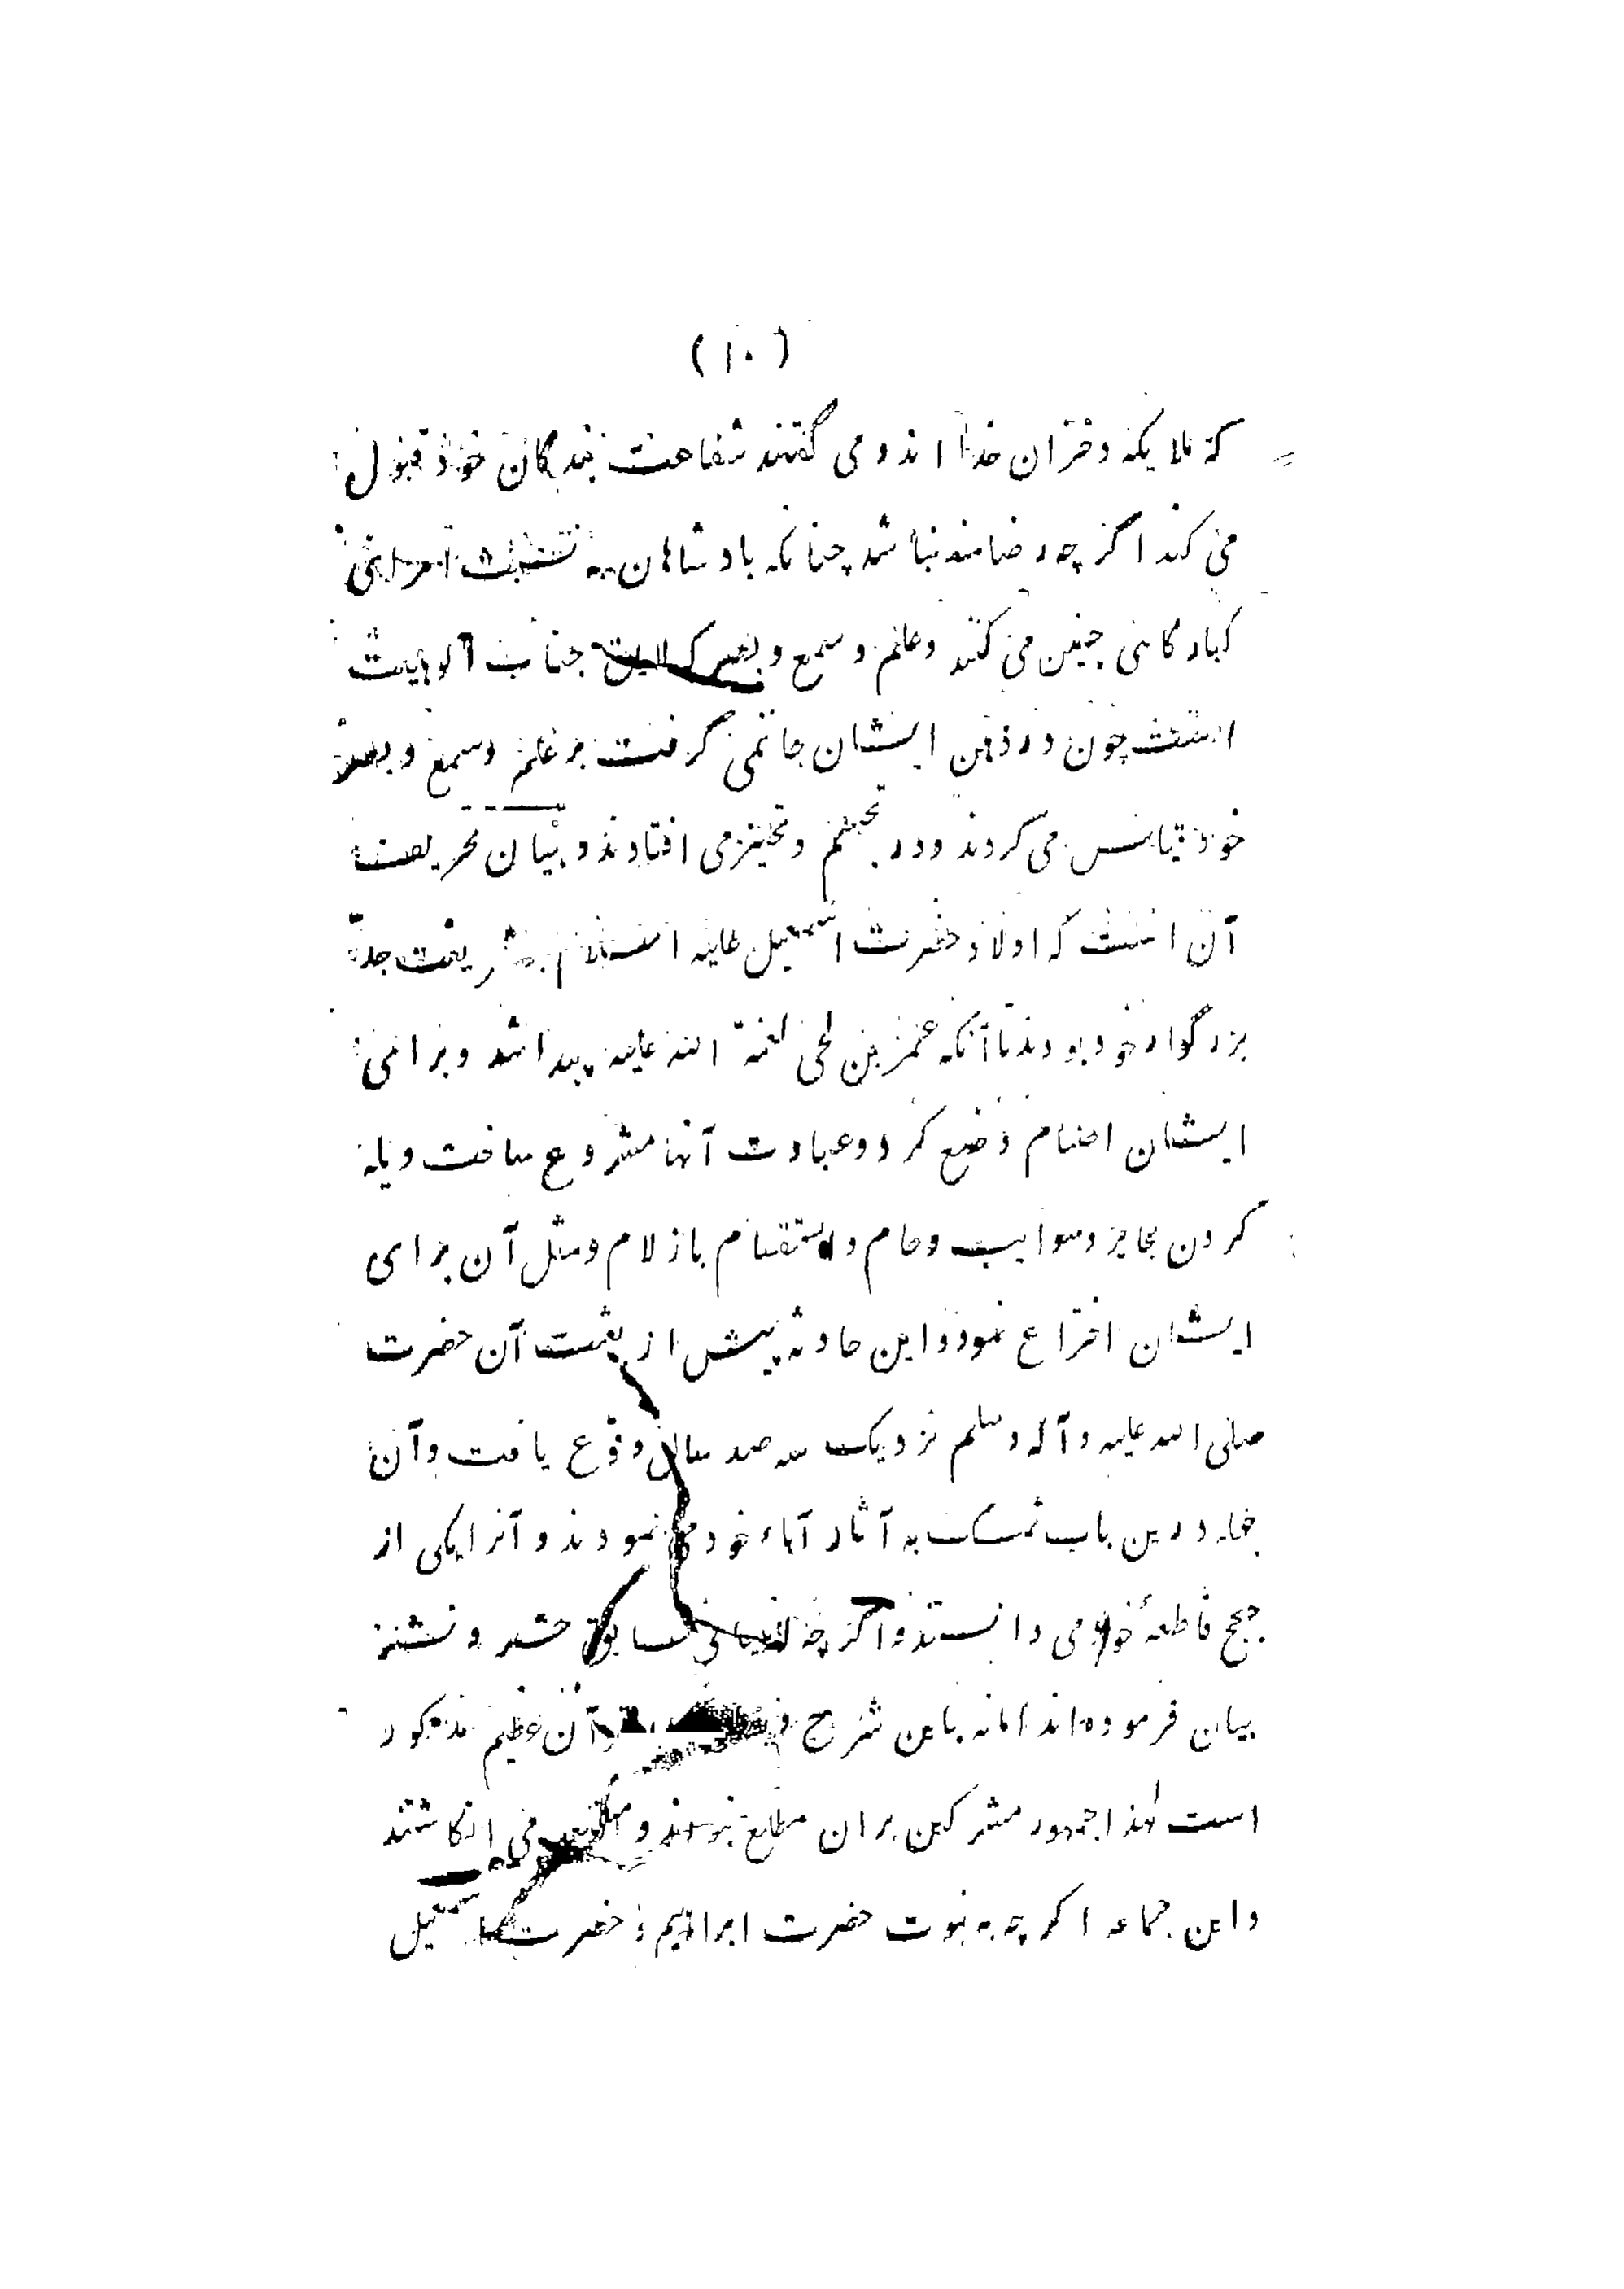 (١٠)
که ملایکه دختران خدا اند و می گفتند شفاعت بندگان خود قبول
می کند اگر چه رضامند نباشد چنانکه بادشاهان به نسبت امرای
کبار گاهی چنین می کنند و علم و سمع و بصر که لایق جناب الوهیت
است چون در ذهن ایشان جا نمی گرفت بر علم و سمع و بصر
خود قیاس می کردند و در تجسم و تحیز می افتادند و بیان تحریف
آن است که اولاد حضرت اسمعیل علیه السلام بشریعت جد
بزرگوار خود بودند تا آنکه عمرو بن لحی لعنة الله علیه پیدا شد و برای
ایشان اصنام وضع کرد و عبادت آنها مشروع ساخت و یله
کردن بحایر و سوایب و حام و استقسام بازلام و مثل آن برای
ایشان اختراع نمود و این حادثه پیش از بعثت آن حضرت
صلی الله علیه و آله و سلم نزدیک سه صد سال وقوع یافت و آن
جهله درین باب تمسک به آثار آباء خود می نمودند و آنرا یکی از
حجج قاطعهٔ خود می دانستند و اگرچه انبیای سابق حشر و نشر
بیان فرموده اند اما نه باین شرح و قرآن عظیم مذکور
است لهذا جمهور مشرکین بران مطلع نبودند و می انگاشتند
و این جماعه اگرچه به نبوت حضرت ابراهیم و حضرت اسمعیل